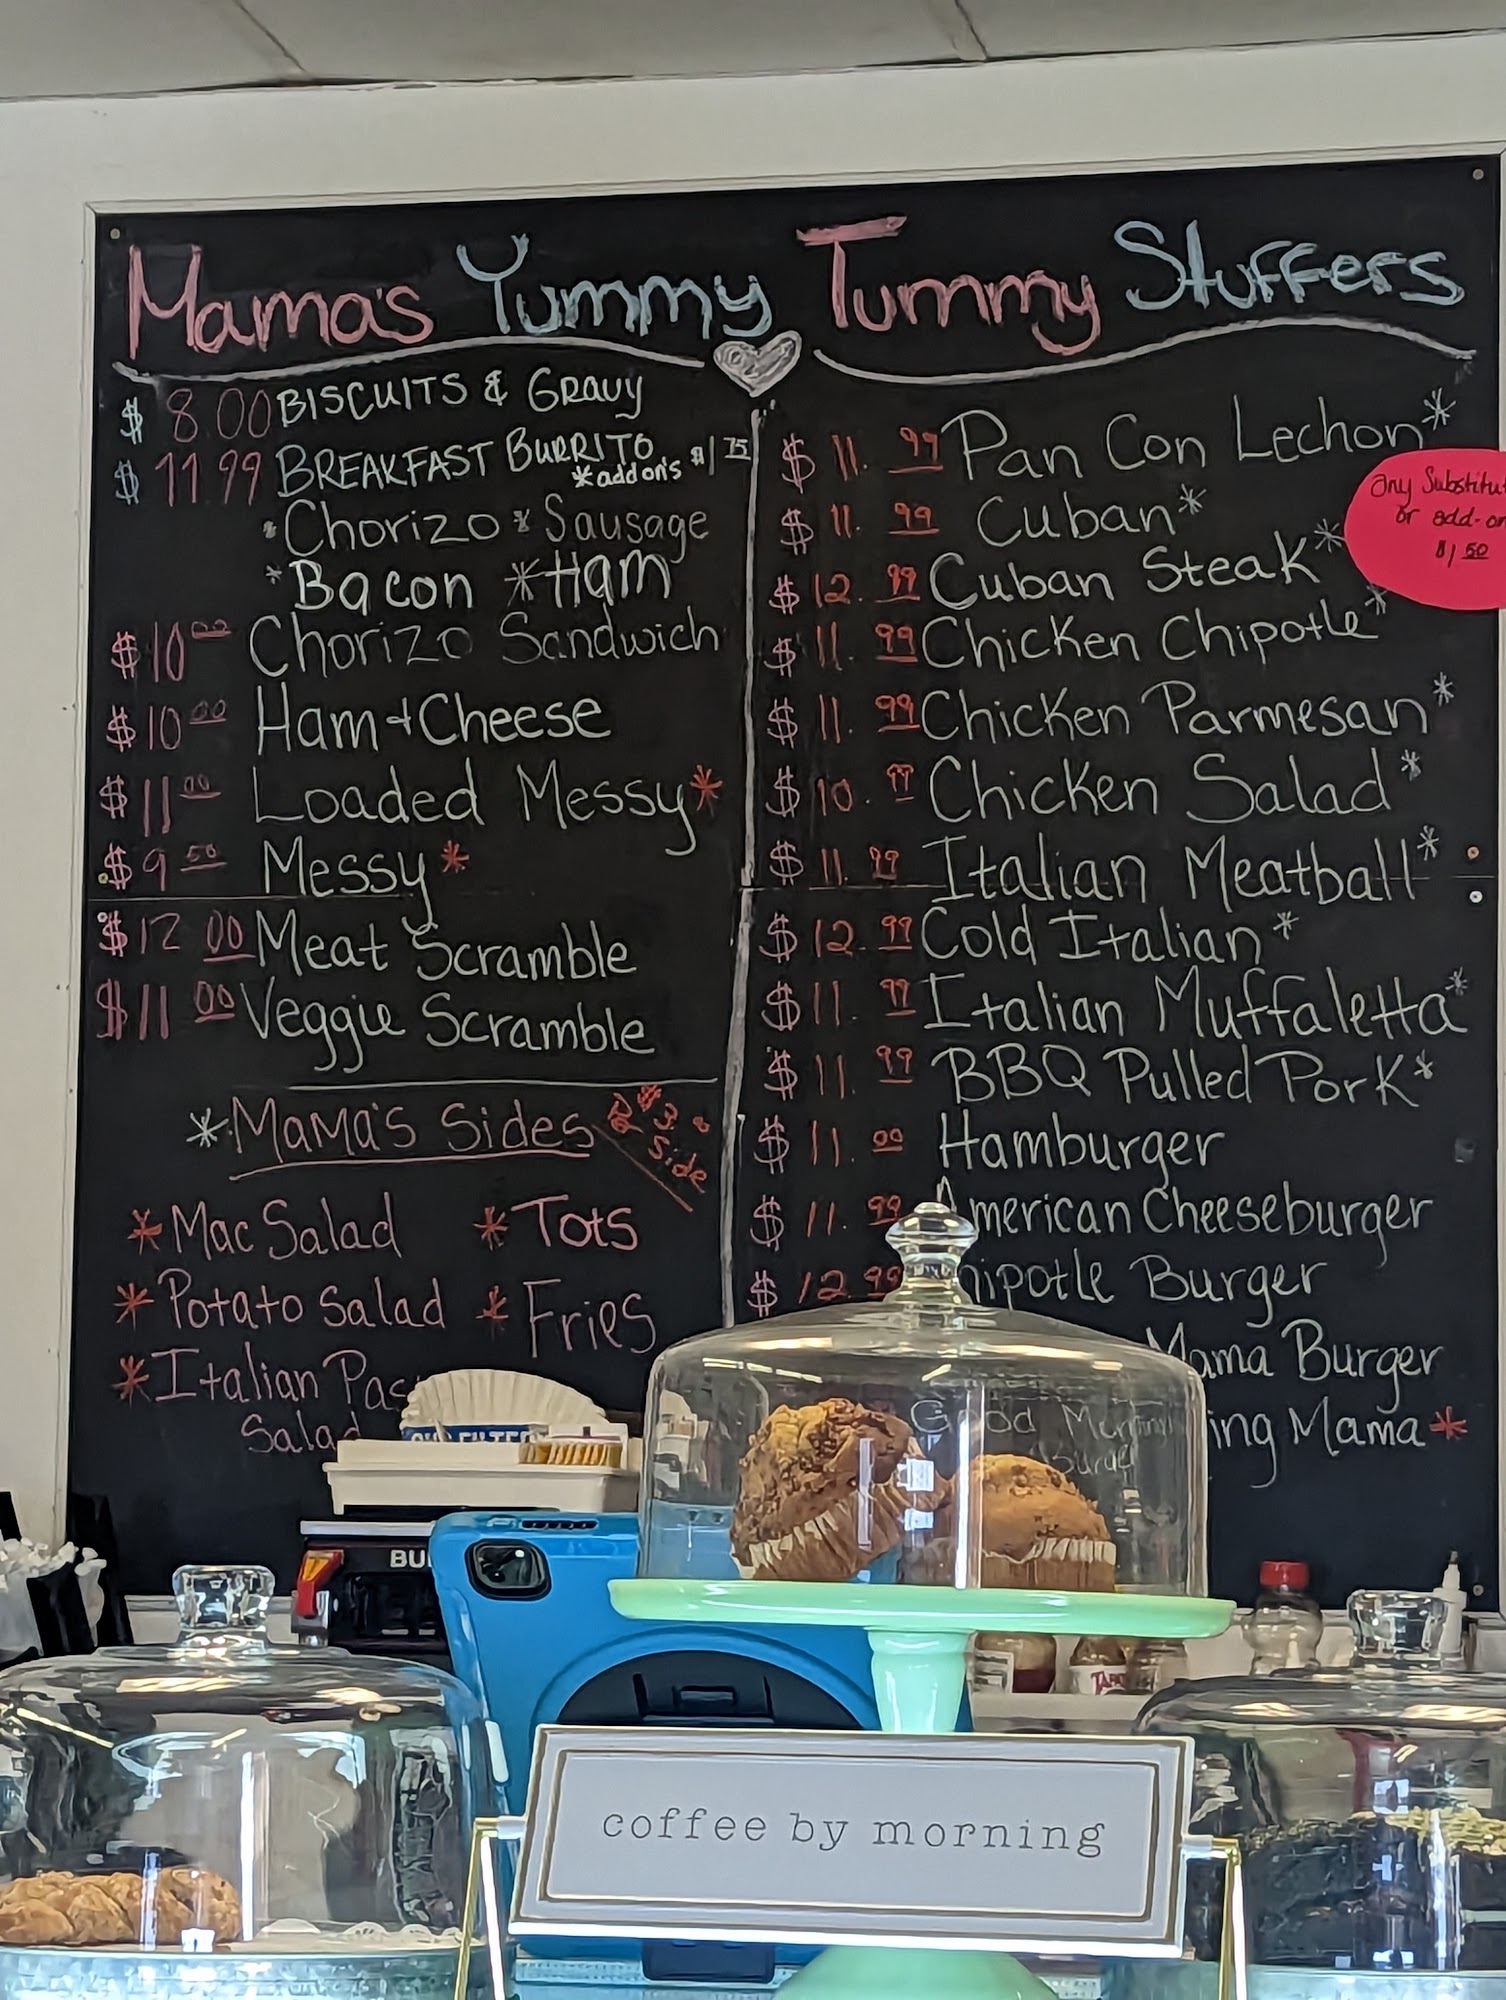 Mama's Yummy Tummy Stuffers
$ 8.00 BISCUITS & GRAVY
$ 11.99 BREAKFAST BURRITO
*add on's $1.75
* Chorizo * Sausage
* Bacon * Ham
$10.00 Chorizo Sandwich
$10.00 Ham + Cheese
$11.00 Loaded Messy*
$9.50 Messy*
$12.00 Meat Scramble
$11.00 Veggie Scramble
*MAMA'S Sides
$3.
Side
*Mac Salad
*Tots
*Potato Salad
*Fries
*Italian
Salad
$11.99 Pan Con Lechon*
$11.99 Cuban*
$12.99 Cuban Steak*
$11.99 Chicken Chipotle*
$11.99 Chicken Parmesan*
$10.99 Chicken Salad*
$11.99 Italian Meatball*
$12.99 Cold Italian*
$11.99 Italian Muffaletta*
$11.99 BBQ Pulled Pork*
$11.00 Hamburger
$11.99 American Cheeseburger
$12.99 Chipotle Burger
Mama Burger
Mama*
Good Morning
Burger
any
or add-on
$1.50
coffee by morning